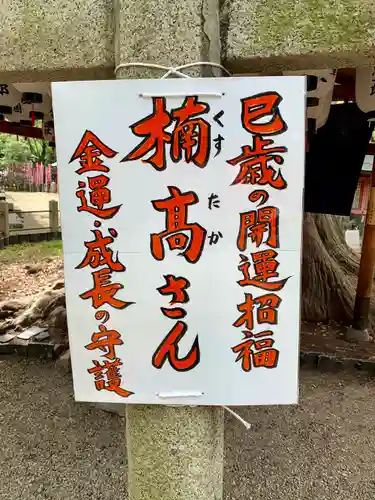 巳歳の開運招福
楠高さん
くす
たか
金運・成長の守護